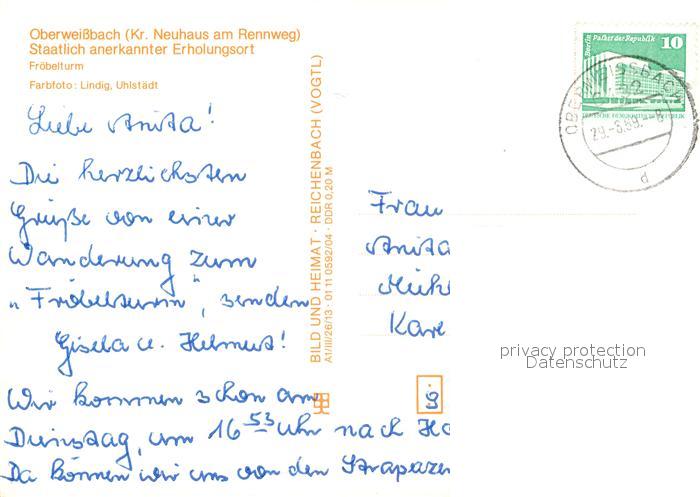 Oberweißbach (Kr. Neuhaus am Rennweg)
Staatlich anerkannter Erholungsort
Fröbelturm
Farbfoto: Lindig, Uhlstädt
Liebe Anita!
Die herzlichsten
Grüße von einer
Wanderung zum
"Fröbelturm", senden
Gisela u. Helmut!
Wir kommen schon am
Dienstag, um 16 53 Uhr nach
Da können wir uns von den Strapazen
BILD UND HEIMAT · REICHENBACH (VOGTL)
A1/III/26/13 · 01 11 0592/04 · DDR 0,20 M
Berlin Palast der Republik 10
DEUTSCHE DEMOKRATISCHE REPUBLIK
OBERWEISSBACH
d
Frau
Anita
privacy protection
Datenschutz